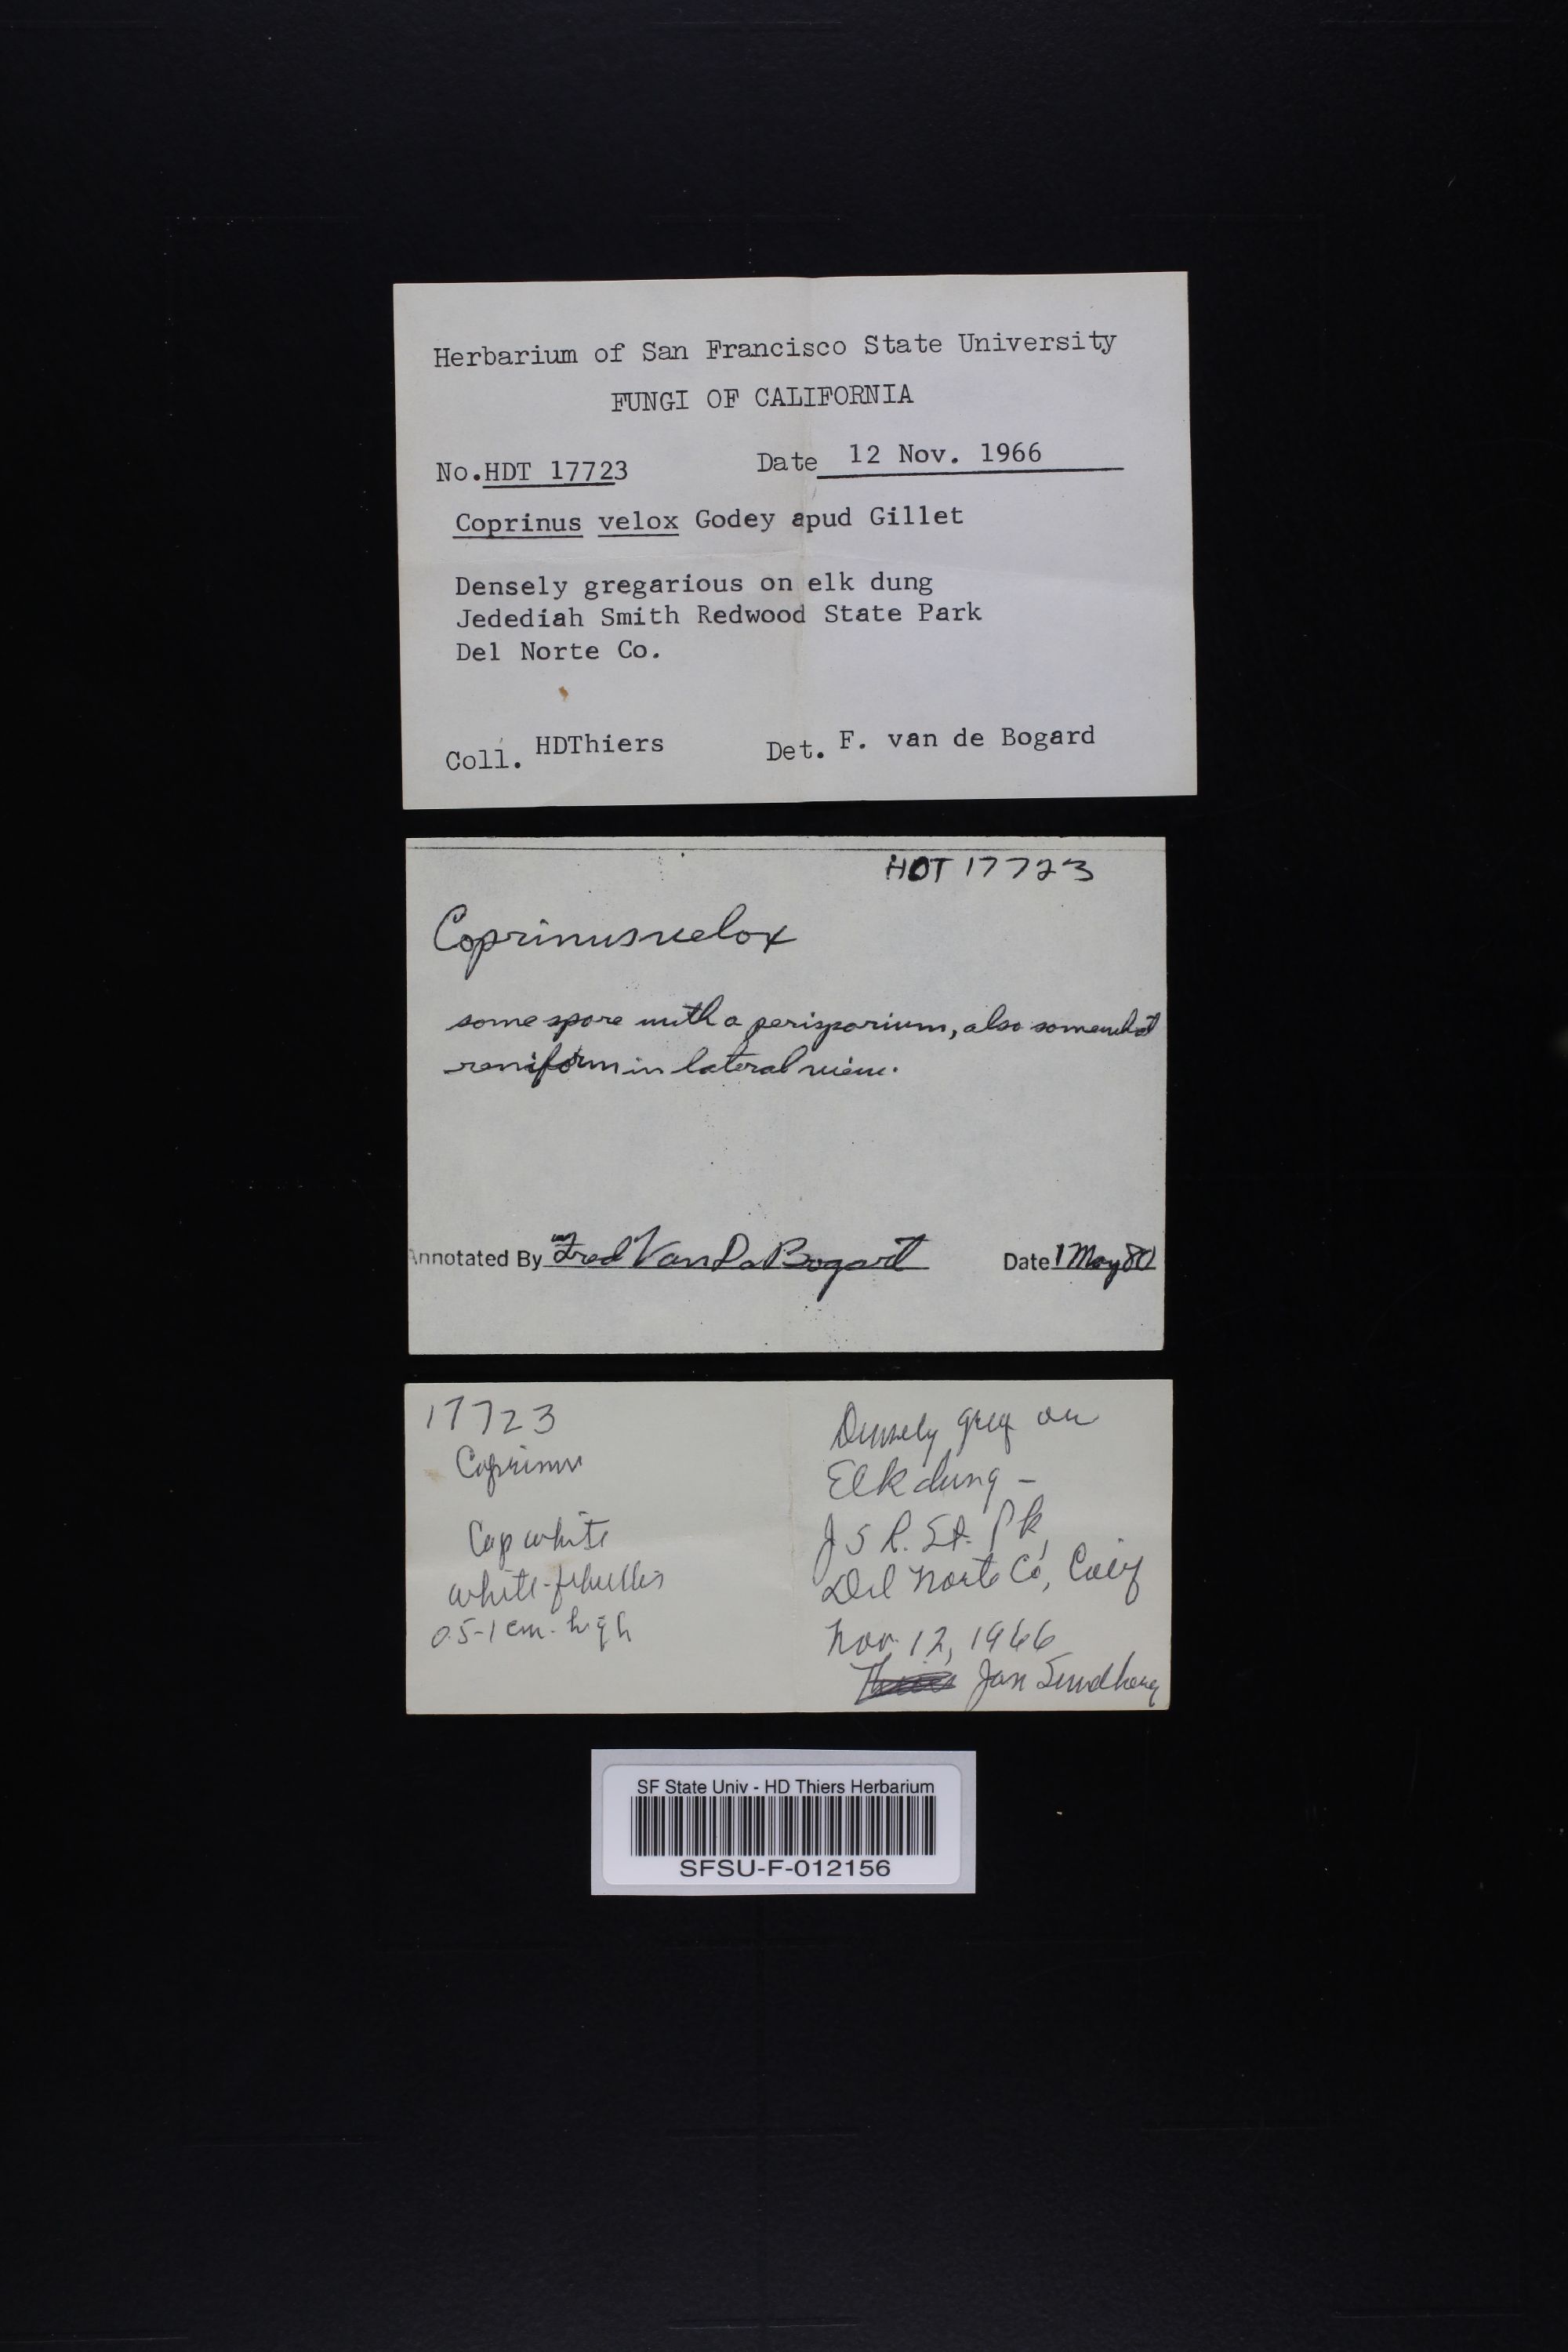 Herbarium of San Francisco State University
FUNGI OF CALIFORNIA
No. HDT 17723 Date 12 Nov. 1966
Coprinus velox Godey apud Gillet
Densely gregarious on elk dung
Jedediah Smith Redwood State Park
Del Norte Co.
Coll. HDThiers Det. F. van de Bogard
HDT 17723
Coprinus velox
some spore with a perisporium, also somewhat
reniform in lateral view.
Annotated By Fred Van De Bogart Date 1 May 80
17723
Coprinus
Cap white
white-fibrillos
0.5-1 cm. high
Densely greg on
Elk dung -
J S R. St. Pk,
Del Norte Co, Calif
Nov. 12, 1966
Thiers Jan Sundberg
SF State Univ - HD Thiers Herbarium
SFSU-F-012156